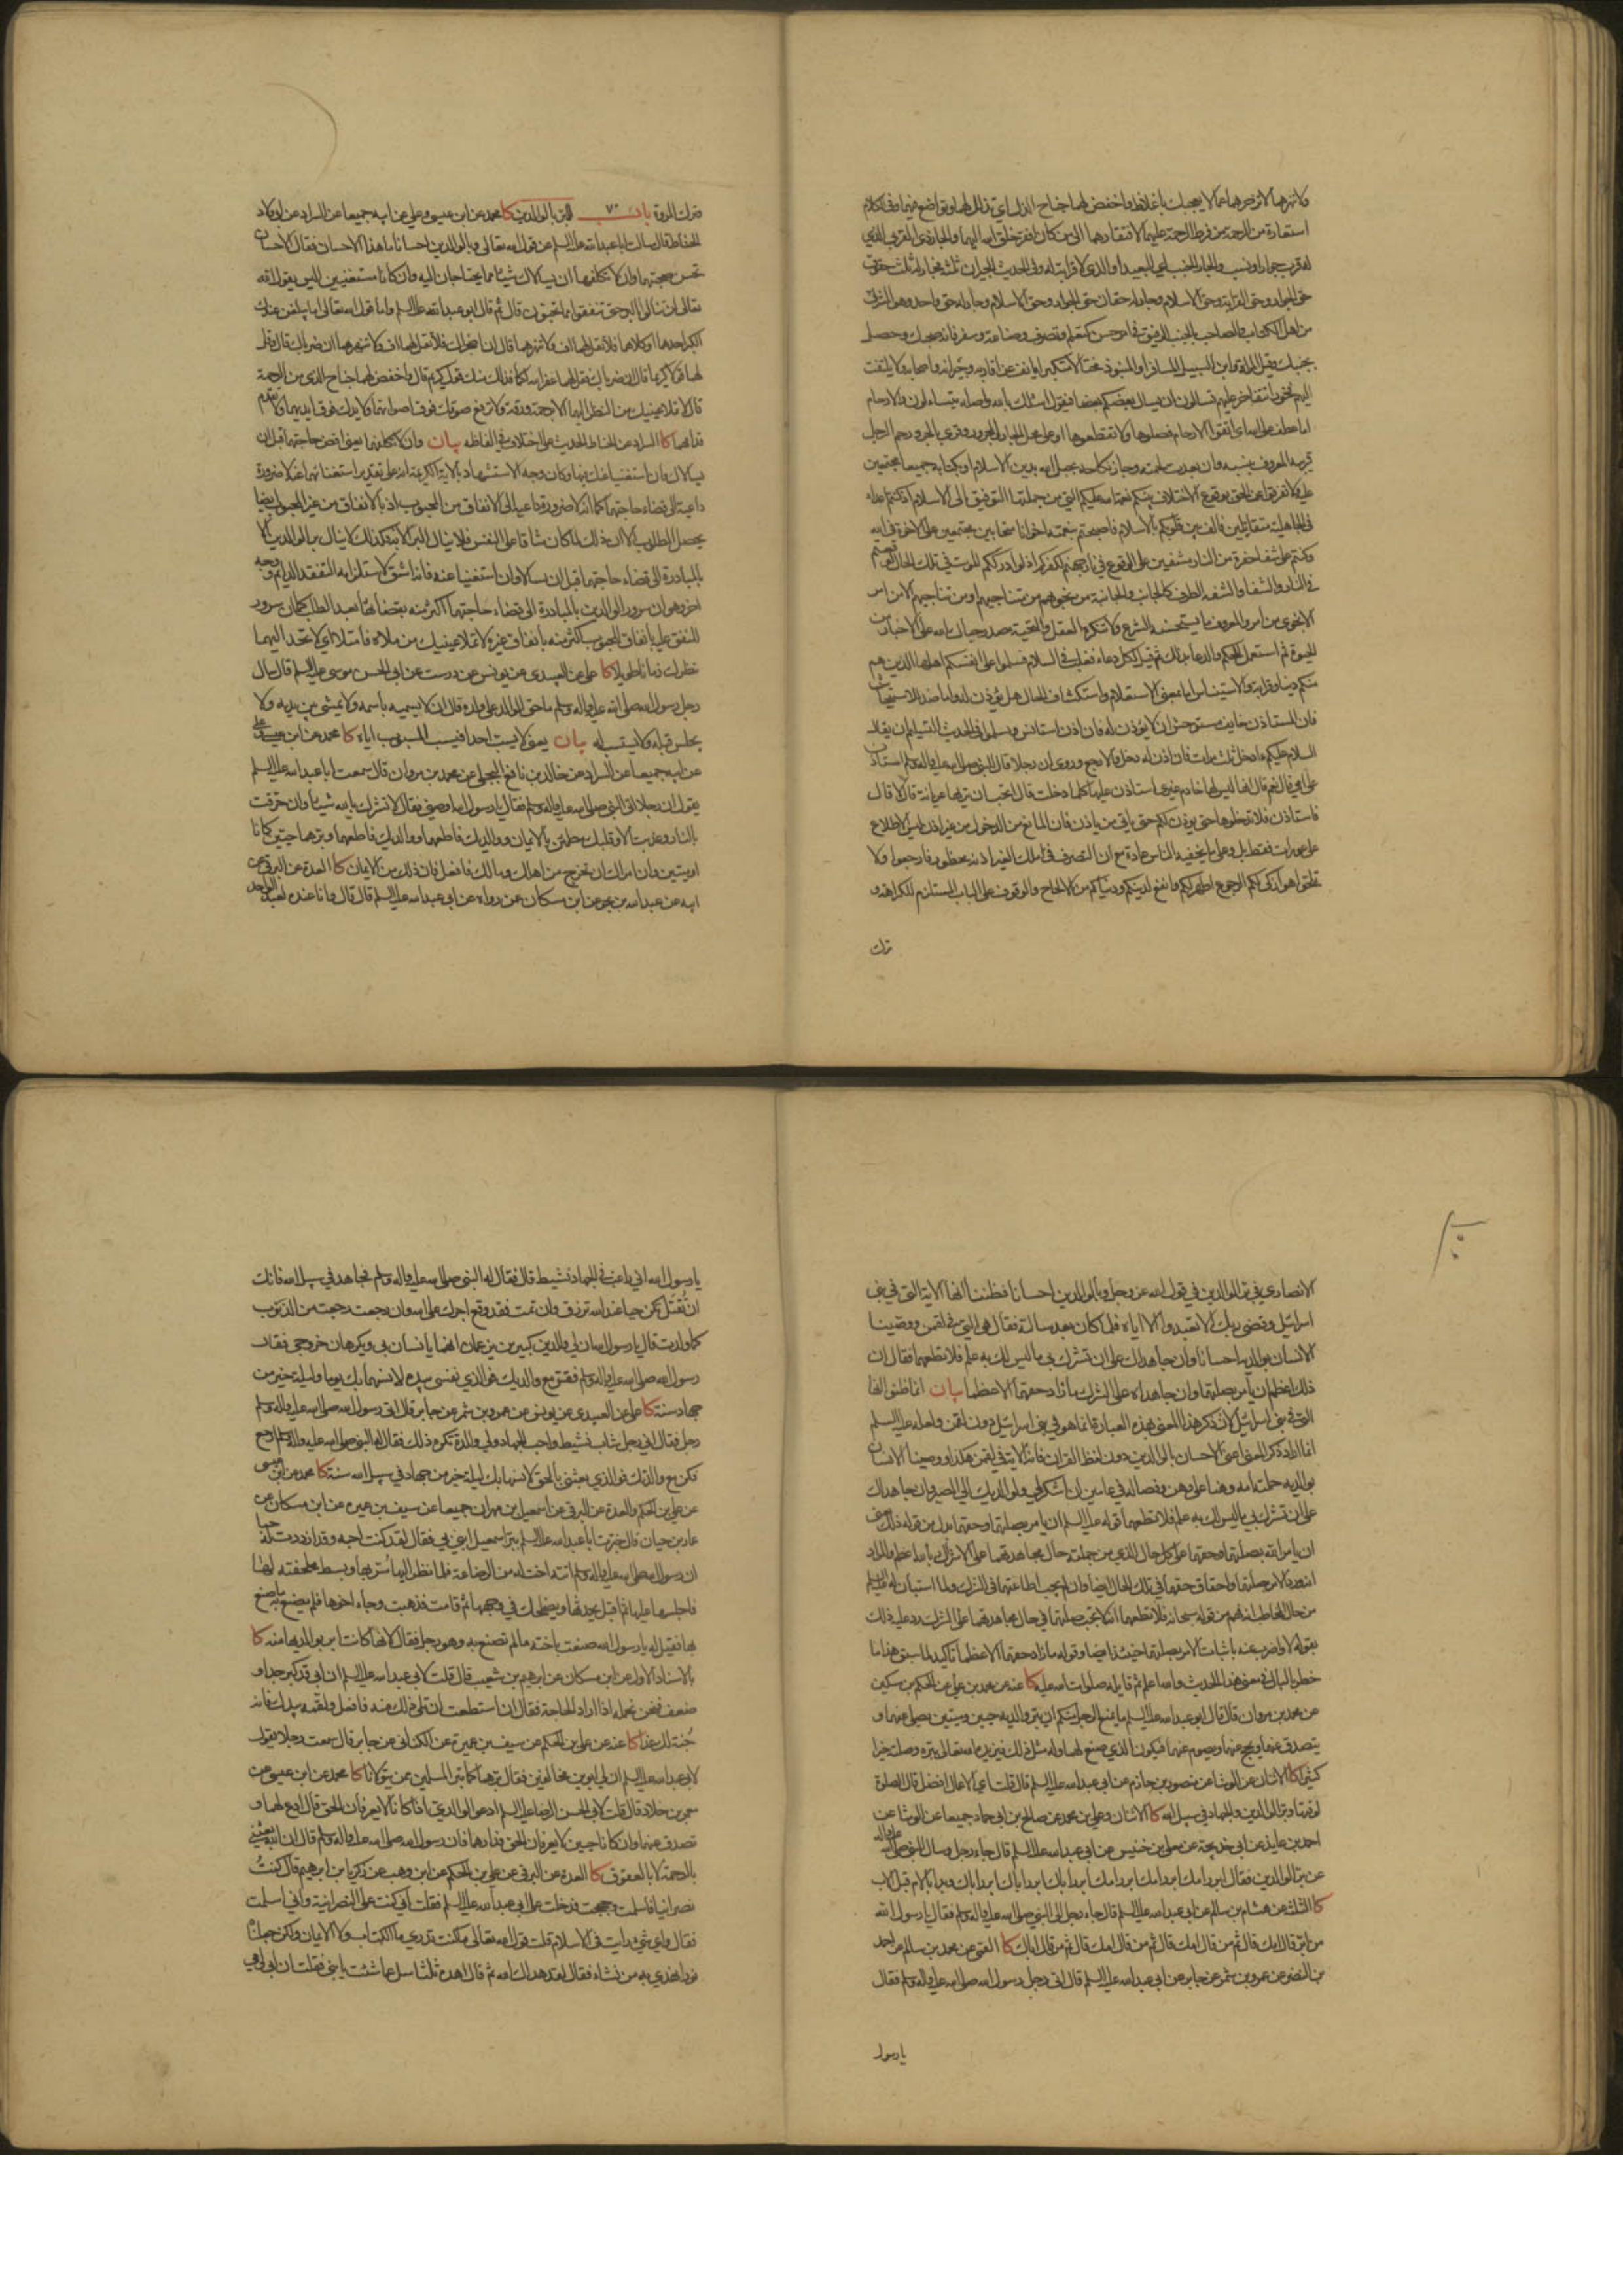 ولا تنهرهما لا تزجرهما عما لا يعجبك باغلاظ واخفض لهما جناح الذل اي تذلل لهما وتواضع فيهما وفي الكلام
استعارة من الرحمة من فرط الرحمة عليهما لافتقارهما الى من كان افقر خلق الله اليهما والجار ذي القربى الذي
له قرب جوار او نسب والجار الجنب اي البعيد او الذي لا قرابة له وفي الحديث الجيران ثلثة فجار له ثلث حقوق
حق الجوار وحق القرابة وحق الاسلام وجار له حقان حق الجوار وحق الاسلام وجار له حق واحد وهو المشرك
من اهل الكتاب والصاحب بالجنب الرفيق في امر حسن كتعلم وتصرف وصناعة وسفر فانه صحبك وحصل
بجنبك وقيل المراة وابن السبيل المسافر او الضيف مختالا متكبرا يانف عن اقاربه وجيرانه واصحابه ولا يلتفت
اليهم فخورا يتفاخر عليهم تساءلون به اي يسال بعضكم بعضا فيقول اسئلك بالله واصله تتساءلون والارحام
اما عطف على الله اي اتقوا الارحام فصلوها ولا تقطعوها او على محل الجار والمجرور وقرئ بالجر ورحم الرجل
قريبه المعروف بنسبه وان بعدت لحمته وجاز نكاحه بحبل الله بدين الاسلام او بكتابه جميعا مجتمعين
عليه ولا تفرقوا عن الحق بوقوع الاختلاف بينكم نعمة الله عليكم التي من جملتها التوفيق الى الاسلام اذ كنتم اعداء
في الجاهلية متقاتلين فالف بين قلوبكم بالاسلام فاصبحتم بنعمته اخوانا متحابين مجتمعين على الاخوة في الله
وكنتم على شفا حفرة من النار مشفين على الوقوع في نار جهنم لكفركم اذ لو ادرككم الموت في تلك الحال لوقعتم
في النار والشفا والشفة الطرف كالجانب والجانبة من نجويهم من متناجيهم او من تناجيهم الا من امر
الا نجوى من امر والمعروف ما يستحسنه الشرع ولا ينكره العقل والتحية مصدر حياك الله على الاخبار من
الحيوة ثم استعمل للحكم والدعاء بذلك ثم قيل لكل دعاء فغلب في السلام فسلموا على انفسكم اهلها الذين هم
منكم دينا وقرابة والاستيناس اما بمعنى الاستعلام واستكشاف الحال هل يؤذن له واما ضد الاستيحاش
فان المستاذن خايف مستوحش ان لا يؤذن له فان اذن استانس وتسلموا في الحديث التسليم ان يقال
السلام عليكم ءادخل ثلث مرات فان اذن له دخل والا رجع وروي ان رجلا قال للنبي صلى الله عليه واله وسلم استاذن
على امي قال نعم قال انها ليس لها خادم غيري استاذن عليها كلما دخلت قال اتحب ان تريها عريانة قال لا قال
فاستاذن فلا تدخلوها حتى يؤذن لكم حتى ياتي من ياذن فان المانع من الدخول من غير اذن ليس الاطلاع
على عورات فقط بل وعلى ما يخفيه الناس عادة مع ان التصرف في ملك الغير اذنه محظور فارجعوا ولا
تلحوا هو ازكى لكم الرجوع اطهر لكم وانفع لدينكم ودنياكم من الالحاح والوقوف على الباب المستلزم للكراهة و
ترك
وترك المروة باب ٧٠ البر بالوالدين كا محمد عن ابن عيسى وعلي عن ابيه جميعا عن السراد عن ابي ولاد
الحناط قال سالت ابا عبد الله عليه السلم عن قول الله تعالى وبالوالدين احسانا ما هذا الاحسان فقال الاحسان
تحسن صحبتهما وان لا تكلفهما ان يسالاك شيئا مما يحتاجان اليه وان كانا مستغنيين اليس يقول الله
تعالى لن تنالوا البر حتى تنفقوا مما تحبون قال ثم قال ابو عبد الله عليه السلم واما قول الله تعالى اما يبلغن عندك
الكبر احدهما او كلاهما فلا تقل لهما اف ولا تنهرهما قال ان اضجراك فلا تقل لهما اف ولا تنهرهما ان ضرباك قال وقل
لهما قولا كريما قال ان ضرباك فقل لهما غفر الله لكما فذلك منك قول كريم قال واخفض لهما جناح الذل من الرحمة
قال لا تملا عينيك من النظر اليهما الا برحمة ورقة ولا ترفع صوتك فوق اصواتهما ولا يدك فوق ايديهما ولا تقدم
قدامهما كا السراد عن الحناط الحديث على اختلاف في الفاظه بيان وان لا تكلفهما يعني اقض حاجتهما قبل ان
يسالاك وان استغنيا عنك فيها وكان وجه الاستشهاد بالاية الكريمة انه على تقدير استغنائهما عنه لا ضرورة
داعية الى قضاء حاجتهما كما انه لا ضرورة داعية الى الانفاق من المحبوب اذ بالانفاق من غير المحبوب ايضا
يحصل المطلوب الا ان ذلك لما كان شاقا على النفس فلا ينال البر الا به فكذلك لا ينال بر الوالدين الا
بالمبادرة الى قضاء حاجتهما قبل ان يسالا وان استغنيا عنه فانه اشق لاستلزامه التفقد الدايم ووجه
اخر وهو ان سرور الوالدين بالمبادرة الى قضاء حاجتهما اكثر منه بقضائها بعد الطلب كما ان سرور
المنفق عليه بانفاق المحبوب اكثر منه بانفاق غيره لا تملا عينيك من ملاه فامتلا اي لا تحد اليهما
نظرك زمانا طويلا كا علي عن العبيدي عن يونس عن درست عن ابي الحسن موسى عليه السلم قال سال
رجل رسول الله صلى الله عليه واله وسلم ما حق الوالد على ولده قال ان لا يسميه باسمه ولا يمشي بين يديه ولا
يجلس قبله ولا يستسب له بيان يعني لا يسب احدا فيسب المسبوب اباه كا محمد عن ابن عيسى وعلي
عن ابيه جميعا عن السراد عن خالد بن نافع البجلي عن محمد بن مروان قال سمعت ابا عبد الله عليه السلم
يقول ان رجلا اتى النبي صلى الله عليه واله وسلم فقال يا رسول الله اوصني فقال لا تشرك بالله شيئا وان حرقت
بالنار وعذبت الا وقلبك مطمئن بالايمان ووالديك فاطعهما وبرهما حيين كانا
او ميتين وان امراك ان تخرج من اهلك ومالك فافعل فان ذلك من الايمان كا العدة عن البرقي عن
ابيه عن عبد الله بن بحر عن ابن مسكان عن رواه عن ابي عبد الله عليه السلم قال قال وانا عنده لعبد الواحد
الانصاري في بر الوالدين في قول الله عز وجل وبالوالدين احسانا فظننا انها الاية التي في بني
اسرائيل وقضى ربك الا تعبدوا الا اياه فلما كان بعد سالته فقال هي التي في لقمن ووصينا
الانسان بوالديه احسانا وان جاهداك على ان تشرك بي ما ليس لك به علم فلا تطعهما فقال ان
ذلك اعظم ان يامر بصلتهما وان جاهداه على الشرك ما زاد حقهما الا عظما بيان انما ظنوا انها
التي في بني اسرائيل لان ذكر هذا المعنى بهذه العبارة انما هو في بني اسرائيل دون لقمن ولعله عليه السلم
انما اراد ذكر المعنى اعني الاحسان بالوالدين دون لفظ القران فان الاية في لقمن هكذا ووصينا الانسان
بوالديه حملته امه وهنا على وهن وفصاله في عامين ان اشكر لي ولوالديك الي المصير وان جاهداك
على ان تشرك بي ما ليس لك به علم فلا تطعهما قوله عليه السلم ان يامر بصلتهما وحقهما بدل من قوله ذلك يعني
ان يامر الله بصلتهما وحقهما على كل حال الذي من جملته حال مجاهدتهما على الاشراك بالله اعظم والمراد
انه ورد الامر بصلتهما واحقاق حقهما في تلك الحال ايضا وان لم يجب اطاعتهما في الشرك ولما استبان له عليه السلم
من حال المخاطب انه فهم من قوله سبحانه فلا تطعهما انه لا تجب صلتهما في حال مجاهدتهما على الشرك رد عليه ذلك
بقوله لا واضرب عنه باثبات الامر بصلتهما حينئذ ايضا وقوله ما زاد حقهما الا عظما تاكيد لما سبق هذا ما
خطر بالبال في معنى هذا الحديث والله اعلم ثم قايله صلوات الله عليه كا عنه عن محمد بن علي عن الحكم بن مسكين
عن محمد بن مروان قال قال ابو عبد الله عليه السلم ما يمنع الرجل منكم ان يبر والديه حيين وميتين يصلي عنهما و
يتصدق عنهما ويحج عنهما ويصوم عنهما فيكون الذي صنع لهما وله مثل ذلك فيزيده الله تعالى ببره وصلته خيرا
كثيرا كا الاثنان عن الوشاء عن منصور بن حازم عن ابي عبد الله عليه السلم قال قلت اي الاعمال افضل قال الصلوة
لوقتها وبر الوالدين والجهاد في سبيل الله كا الاثنان وعلي بن محمد عن صالح بن ابي حماد جميعا عن الوشاء عن
احمد بن عايذ عن ابي خديجة عن معلى بن خنيس عن ابي عبد الله عليه السلم قال جاء رجل وسال النبي صلى الله عليه واله
عن بر الوالدين فقال ابرر امك ابرر امك ابرر امك ابرر اباك ابرر اباك ابرر اباك وبدا بالام قبل الاب
كا الثلثة عن هشام بن سالم عن ابي عبد الله عليه السلم قال جاء رجل الى النبي صلى الله عليه واله وسلم فقال يا رسول الله
من ابر قال امك قال ثم من قال امك قال ثم من قال امك قال ثم من قال اباك كا القمي عن محمد بن سالم عن احمد
بن النضر عن عمرو بن شمر عن جابر عن ابي عبد الله عليه السلم قال اتى رجل رسول الله صلى الله عليه واله وسلم فقال
يا رسول
يا رسول الله اني راغب في الجهاد نشيط قال فقال له النبي صلى الله عليه واله وسلم فجاهد في سبيل الله فانك
ان تقتل تكن حيا عند الله ترزق وان تمت فقد وقع اجرك على الله وان رجعت رجعت من الذنوب
كما ولدت قال يا رسول الله ان لي والدين كبيرين يزعمان انهما يانسان بي ويكرهان خروجي فقال
رسول الله صلى الله عليه واله وسلم فقر مع والديك فو الذي نفسي بيده لانسهما بك يوما وليلة خير من
جهاد سنة كا علي عن العبيدي عن يونس عن عمرو بن شمر عن جابر قال اتى رسول الله صلى الله عليه واله وسلم
رجل فقال اني رجل شاب نشيط واحب الجهاد ولي والدة تكره ذلك فقال له النبي صلى الله عليه واله وسلم ارجع
فكن مع والدتك فو الذي بعثني بالحق لانسها بك ليلة خير من جهاد في سبيل الله سنة كا محمد عن ابن عيسى
عن علي بن الحكم والعدة عن البرقي عن اسمعيل بن مهران جميعا عن سيف بن عميرة عن ابن مسكان عن
عمار بن حيان قال خبرت ابا عبد الله عليه السلم ببر اسمعيل ابني بي فقال لقد كنت احبه وقد ازددت له حبا
ان رسول الله صلى الله عليه واله وسلم اتته اخت له من الرضاعة فلما نظر اليها سر بها وبسط ملحفته لها
فاجلسها عليها ثم اقبل يحدثها ويضحك في وجهها ثم قامت فذهبت وجاء اخوها فلم يصنع به ما صنع
بها فقيل له يا رسول الله صنعت باخته ما لم تصنع به وهو رجل فقال لانها كانت ابر بوالديها منه كا
بالاسناد الاول عن ابن مسكان عن ابرهيم بن شعيب قال قلت لابي عبد الله عليه السلم ان ابي قد كبر جدا و
ضعف فنحن نحمله اذا اراد الحاجة فقال ان استطعت ان تلي ذلك منه فافعل ولقمه بيدك فانه
جنة لك غدا كا عنه عن علي بن الحكم عن سيف بن عميرة عن الكناني عن جابر قال سمعت رجلا يقول
لابي عبد الله عليه السلم ان لي ابوين مخالفين فقال برهما كما تبر المسلمين ممن يتولانا كا محمد عن ابن عيسى عن
معمر بن خلاد قال قلت لابي الحسن الرضا عليه السلم ادعو لوالدي اذا كانا لا يعرفان الحق قال ادع لهما و
تصدق عنهما وان كانا حيين لا يعرفان الحق فدارهما فان رسول الله صلى الله عليه واله وسلم قال ان الله بعثني
بالرحمة لا بالعقوق كا العدة عن البرقي عن علي بن الحكم عن ابن وهب عن زكريا بن ابرهيم قال كنت
نصرانيا فاسلمت وحججت فدخلت على ابي عبد الله عليه السلم فقلت اني كنت على النصرانية واني اسلمت
فقال واي شيء رايت في الاسلام قلت قول الله تعالى ما كنت تدري ما الكتاب ولا الايمان ولكن جعلناه
نورا نهدي به من نشاء فقال لقد هداك الله ثم قال اهده ثلثا سل عما شئت يا بني فقلت ان ابي وامي